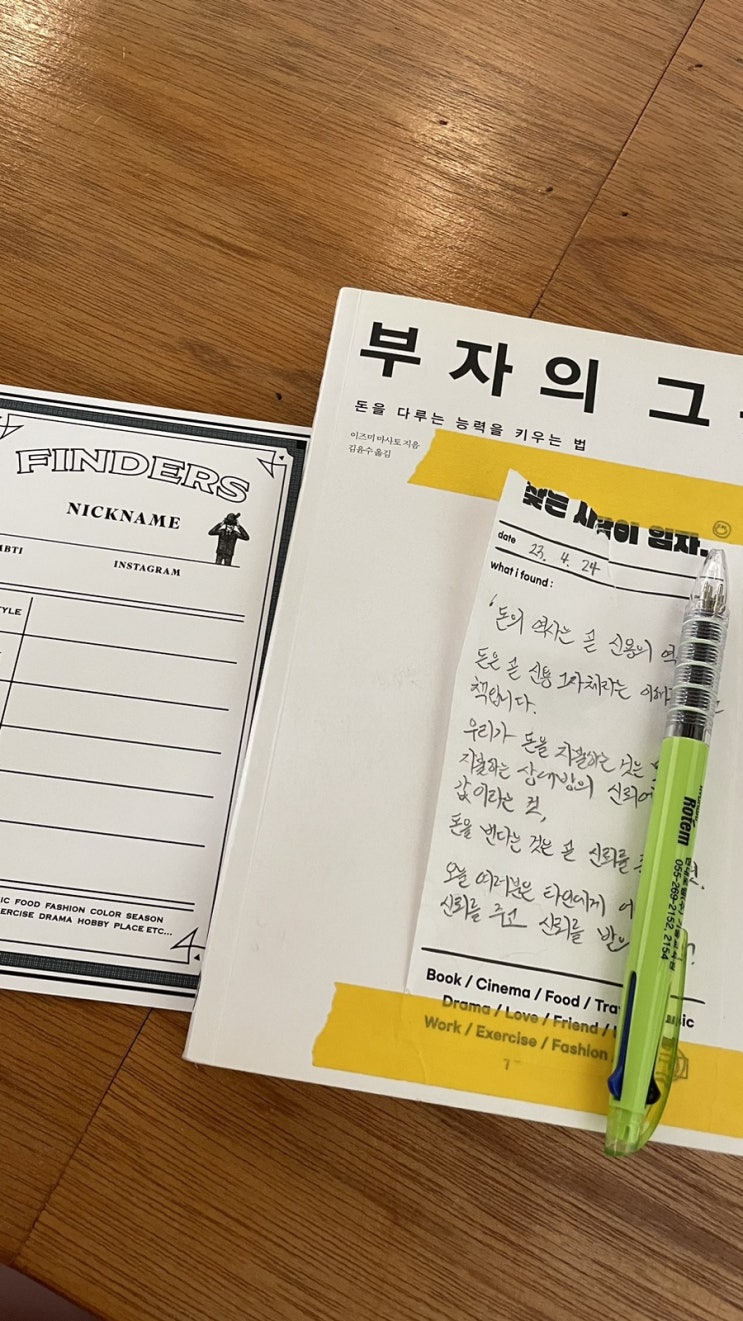 FINDERS
NICKNAME
MBTI
INSTAGRAM
STYLE
IC FOOD FASHION COLOR SEASON
ERCISE DRAMA HOBBY PLACE ETC...
부자의 그
돈을 다루는 능력을 키우는 법
이즈미 마사토 지음
김윤수 옮김
찾는 사람이 임자.
date 23. 4. 24
what i found :
'돈의 역사는 곧 신용의 역
돈은 곧 신용 그 자체라는 이해
책입니다.
우리가 돈을 지불하는 것은
지불하는 상대방의 신뢰에
값이라는 것,
돈을 번다는 것은 곧 신뢰를
오늘 여러분은 타인에게 어
신뢰를 주고 신뢰를 받
Book / Cinema / Food / Tra
Drama / Love / Friend /
Work / Exercise / Fashion
Rotem
055-269-2152, 2154